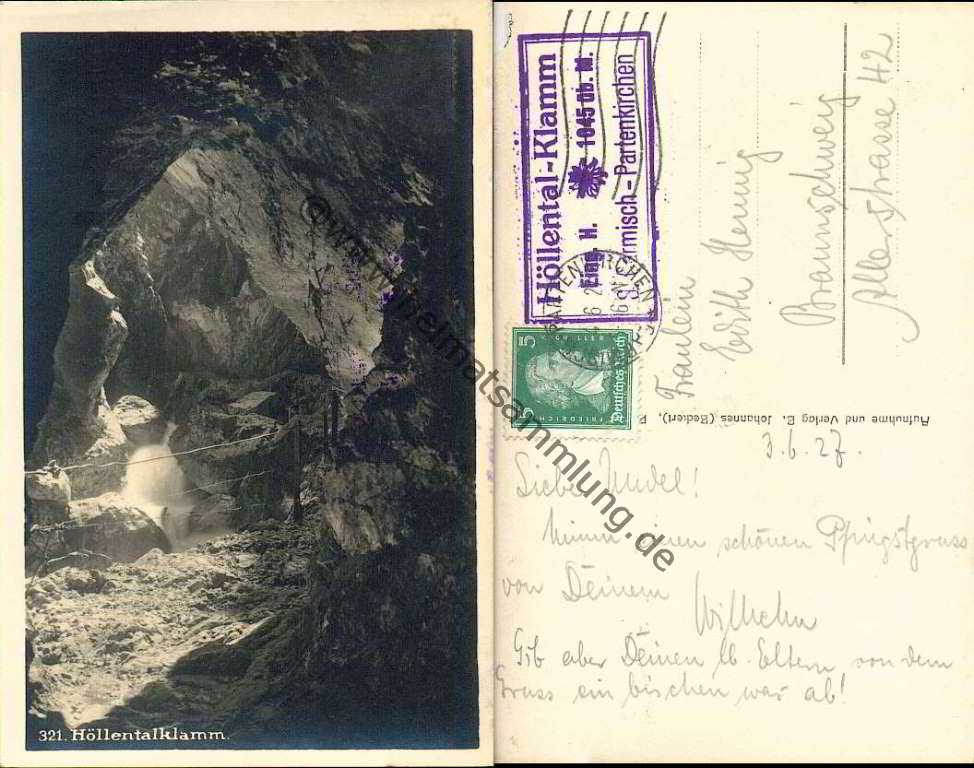 321. Höllentalklamm.
©www.heimatsammlung.de
Höllental-Klamm
Eing. H. 1045 üb. M.
Garmisch-Partenkirchen
5 5
FRIEDRICH
Deutsches Reich
Fräulein
Edith Hennig
Braunschweig
Allerstrasse 42
Aufnahme und Verlag E. Johannes (Bedierf), P.
3.6.27.
Liebes Mädel!
Nimm einen schönen Pfingstgruss
von Deinem
Wilhelm
Gib aber Deinen lb. Eltern von dem
Gruss ein bischen was ab!